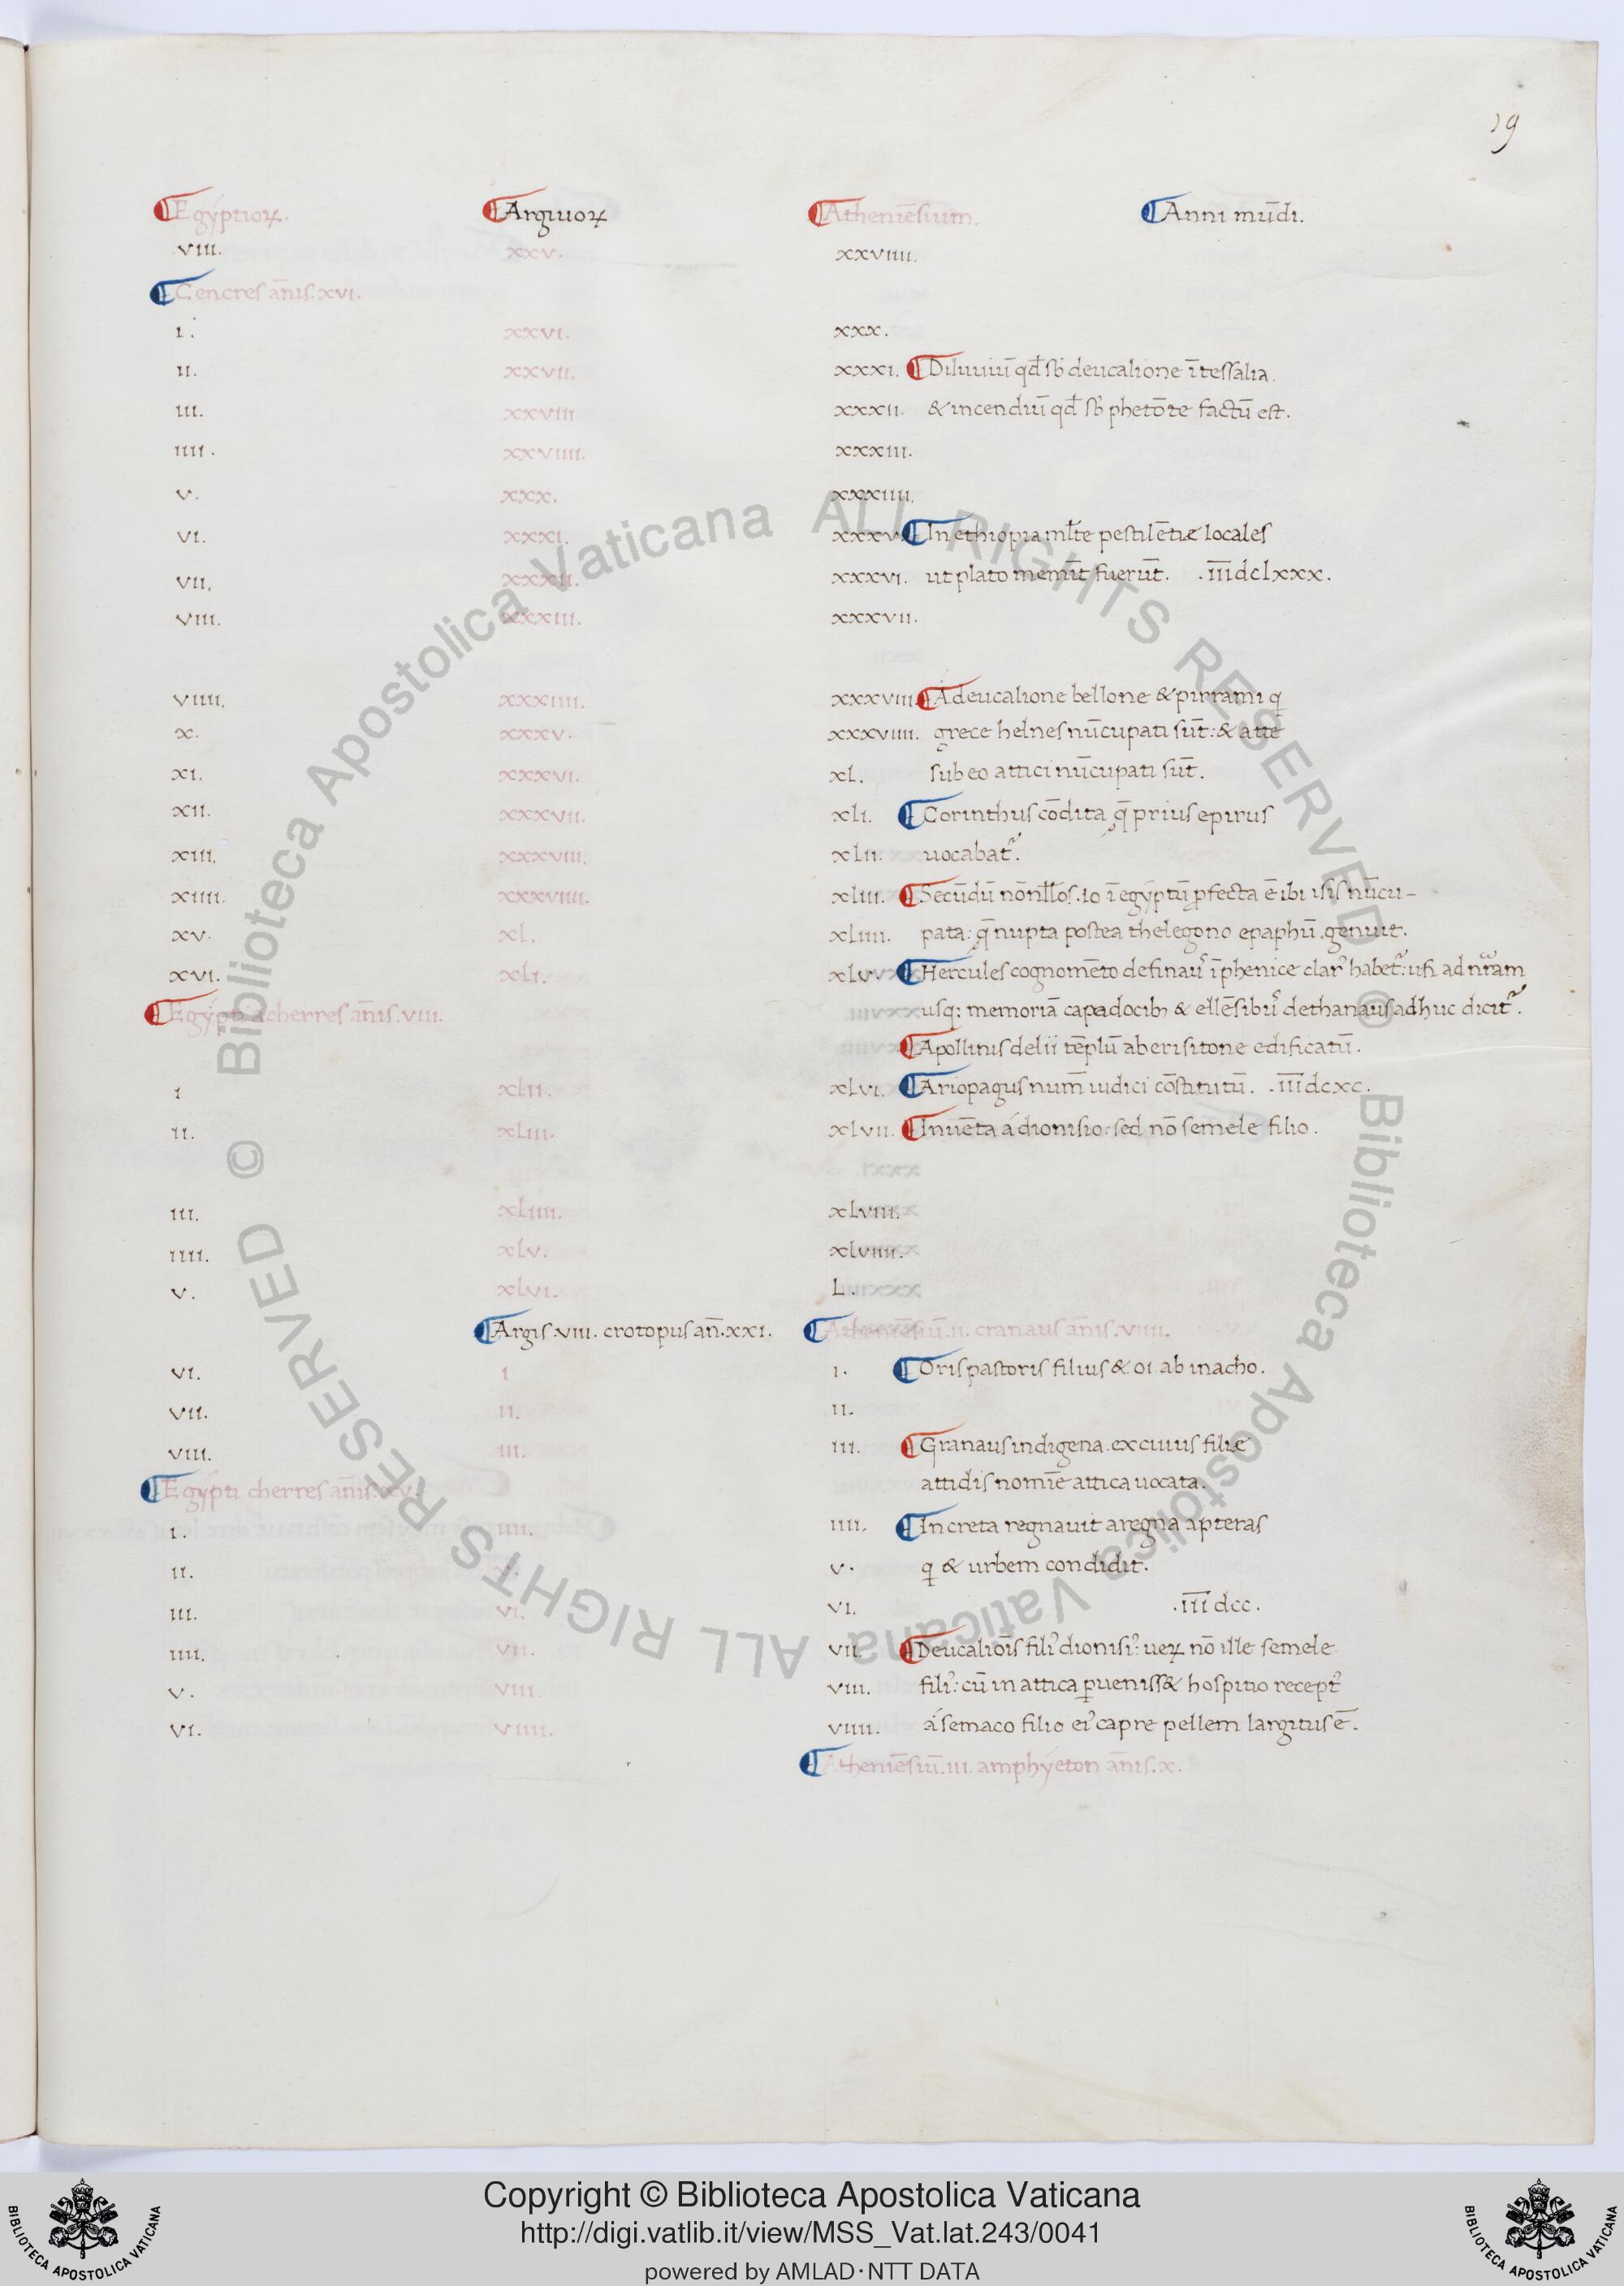 19
Egyptioꝝ. Argiuoꝝ Atheniēsium. Anni mūdi.
VIII. XXV. XXVIIII.
Cencres an̄is. XVI.
I. XXVI. XXX.
II. XXVII. XXXI. Diluuiū qd̄ sb̄ deucalione ī tessalia.
III. XXVIII XXXII. & incendiū qd̄ sb̄ phetōte factū est.
IIII. XXVIIII. XXXIII.
V. XXX. XXXIIII.
VI. XXXI. XXXV. In ethiopia ml̄te pestilētiæ locales
VII. XXXII. XXXVI. ut plato memīt fuerūt. .III̅dclxxx.
VIII. XXXIII. XXXVII.
VIIII. XXXIIII. XXXVIII. A deucalione bellone & pirrami q
X. XXXV. XXXVIIII. grece helnes nūcupati sūt: & atte
XI. XXXVI. XL. sub eo attici nūcupati sūt.
XII. XXXVII. XLI. Corinthus cōdita q̄ prius epirus
XIII. XXXVIII. XLII. uocabat᷑.
XIIII. XXXVIIII. XLIII. Secūdū nōnl̄los. io ī egyptū ꝓfecta ē ibi isis nūcu-
XV. XL. XLIIII. pata: q̄ nupta postea thelegono epaphū genuit.
XVI. XLI. XLV. Hercules cognomēto definau᷒ ī phenice clar᷒ habet᷑: usi ad nr̄am
Egypti acherres an̄is. VIII. usq: memoriā capadocib; & ellēsibu᷒ dethanaus adhuc dicit᷑.
Apollinis delii tēplū ab erisitone edificatū.
I XLII. XLVI. Ariopagus num̄ iudici cōstitutū. .III̅dcxc.
II. XLIII. XLVII. Inuēta á dionisio: sed nō semele filio.
III. XLIIII. XLVIII.
IIII. XLV. XLVIIII.
V. XLVI. L.
Argis. VIII. crotopus an̄. XXI. Atheniēsiū. II. cranaus an̄is. VIIII.
VI. I I. Oris pastoris filius & oi ab inacho.
VII. II. II.
VIII. III. III. Granaus indigena. ex cuius filie
Egypti cherres an̄is. XV. attidis nomīe attica uocata.
I. IIII. IIII. In creta regnauit a regna apteras
II. V. V. q & urbem condidit.
III. VI. VI. .III̅dcc.
IIII. VII. VII. Deucaliōis fili᷒ dionisi᷒: ueꝝ nō ille semele
V. VIII. VIII. fili᷒: cū in attica ꝑueniss& hospitio recept᷒
VI. VIIII. VIIII. á semaco filio ei᷒ capre pellem largitus ē.
Atheniēsiū. III. amphyeton an̄is. X.
© Biblioteca Apostolica Vaticana ALL RIGHTS RESERVED
© Biblioteca Apostolica Vaticana ALL RIGHTS RESERVED
Copyright © Biblioteca Apostolica Vaticana
http://digi.vatlib.it/view/MSS_Vat.lat.243/0041
powered by AMLAD·NTT DATA
BIBLIOTECA APOSTOLICA VATICANA
BIBLIOTECA APOSTOLICA VATICANA